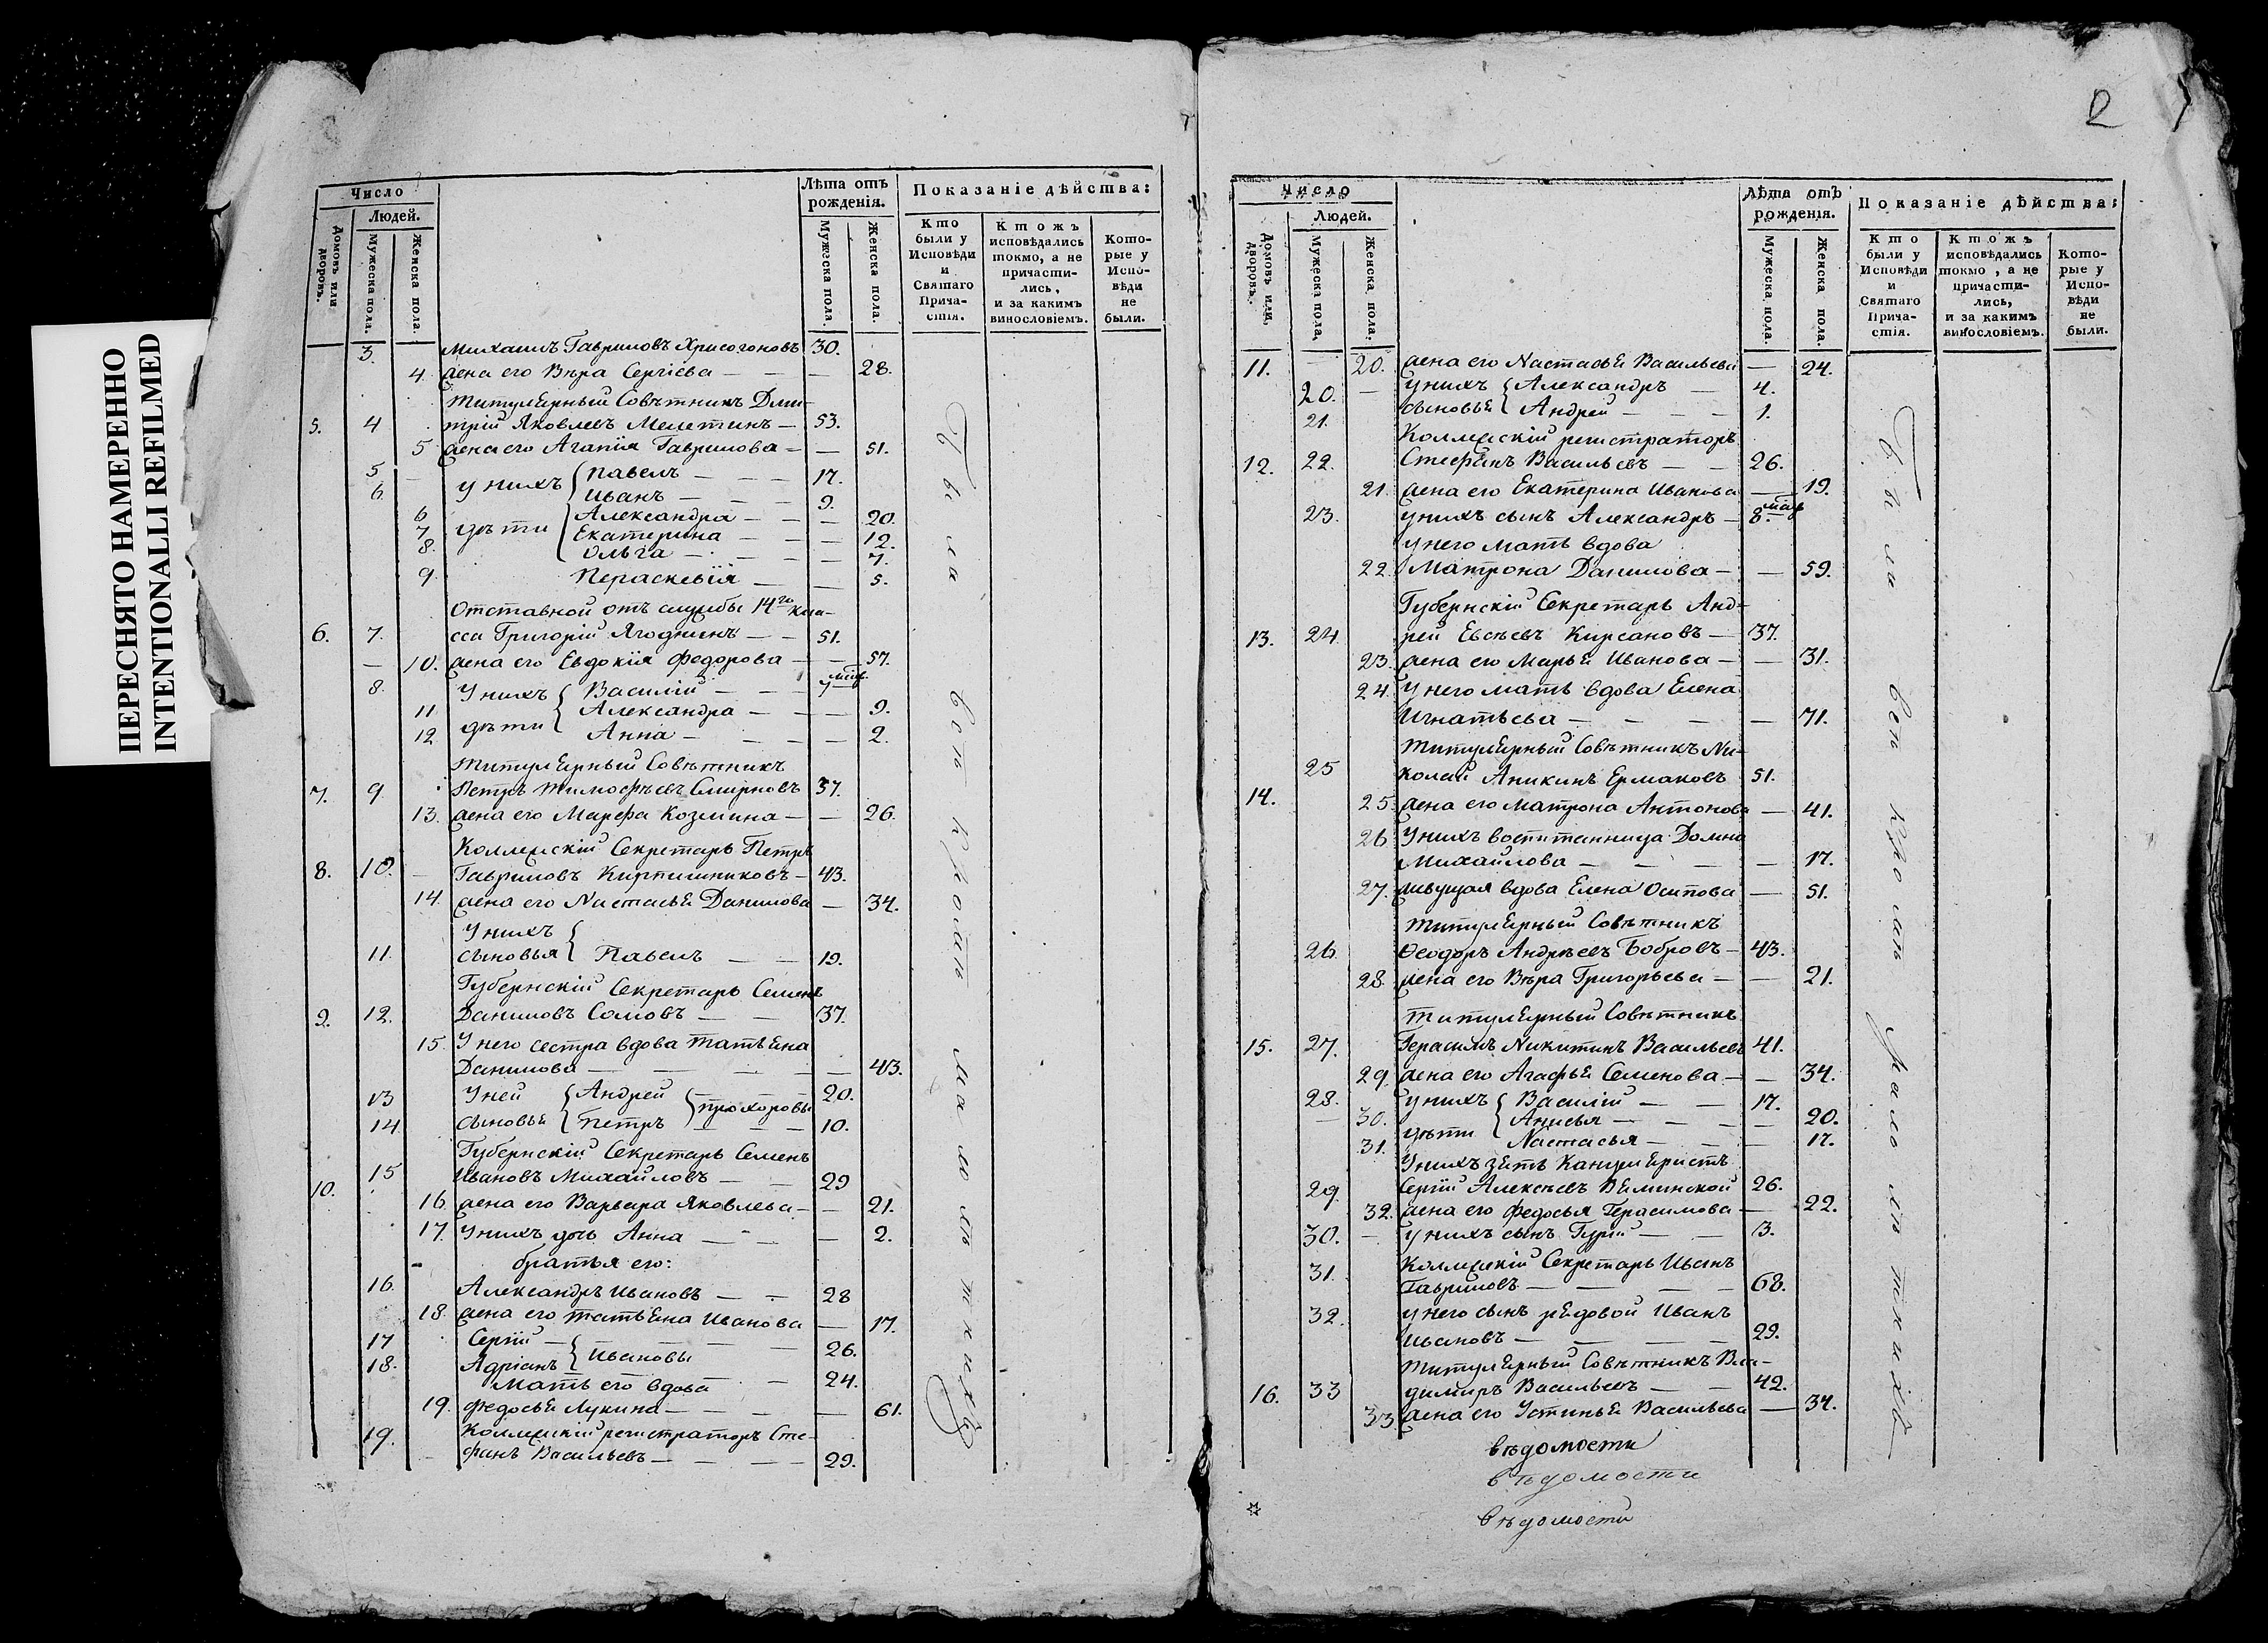 ПЕРЕСНЯТО НАМЕРЕННО
INTENTIONALLI REFILMED
2
Число
Людей.
Домовъ или дворовъ.
Мужеска пола.
Женска пола.
Лѣта отъ рожденія.
Мужеска пола.
Женска пола.
Показаніе дѣйства:
Кто были у Исповѣди и Святаго Прича-стія.
Ктожъ исповѣдались токмо, а не причасти-лись, и за какимъ винословіемъ.
Кото-рые у Испо-вѣди не были.
3. Михаилъ Гавриловъ Хрисогоновъ 30.
4. жена его Вѣра Сергіева — — — 28.
Титулярный Совѣтникъ Дми-
5. 4 трій Яковлевъ Мелетинъ — 53.
5 жена его Агапія Гаврилова — — 51.
5 у нихъ Павелъ — — — 17.
6. Иванъ — — — 9.
6 дѣти Александра — — — 20.
7 Екатерина — — — 12.
8. Ольга — — — 7.
9 Пераскевія — — 5.
Отставной отъ службы 14го кла-
6. 7. сса Григорій Ягодкинъ — — 51.
— 10. жена его Евдокія Федорова — — 57.
8. У нихъ Василій — — — 7 мѣс.
11 дѣти Александра — — — 9.
12 Анна — — — — 2.
Титулярный Совѣтникъ
7. 9 Петръ Тимофѣевъ Смирновъ 37.
13. жена его Марфа Козмина — — 26.
Коллежскій Секретарь Петръ
8. 10. Гавриловъ Кирпишниковъ — 43.
14 жена его Настасья Данилова — 34.
У нихъ
11 сыновья Павелъ — — 19.
Губернскій Секретарь Семенъ
9. 12. Даниловъ Сомовъ — — 37.
15 У него сестра вдова Татьяна
Данилова — — — — 43.
13 У ней Андрей Прохоровы 20.
14 сыновья Петръ — — — 10.
Губернскій Секретарь Семенъ
10. 15 Ивановъ Михайловъ — — 29
16 жена его Варвара Яковлева — — 21.
17 У нихъ дочь Анна — — — 2.
братья его:
16. Александръ Ивановъ — — 28
18 жена его Татьяна Иванова — 17.
17 Сергій — Ивановы — — 26.
18. Адріанъ
Мать его вдова — 24.
19. Федосья Лукина — — — — 61.
19. Коллежскій регистраторъ Сте-
фанъ Васильевъ — — — — 29.
Были
Число
Людей.
Домовъ или дворовъ.
Мужеска пола.
Женска пола.
Лѣта отъ рожденія.
Мужеска пола.
Женска пола.
Показаніе дѣйства:
Кто были у Исповѣди и Святаго Прича-стія.
Ктожъ исповѣдались токмо, а не причасти-лись, и за какимъ винословіемъ.
Кото-рые у Испо-вѣди не были.
11. — 20. жена его Настасья Васильева — 24.
20. — У нихъ Александръ — 4.
21. сыновья Андрей — — — 1.
Коллежскій регистраторъ
12. 22. Стефанъ Васильевъ — — 26.
21. жена его Екатерина Иванова — 19.
23. у нихъ сынъ Александръ — 8. мѣс
у него мать вдова
22. Матрона Данилова — — 59.
Губернскій Секретарь Анд-
13. 24 рей Евсѣевъ Кирсановъ — 37.
23. жена его Марья Иванова — — 31.
24. У него мать вдова Елена
Игнатьева — — — — 71.
Титулярный Совѣтникъ Ни-
25 колай Аникинъ Ермаковъ 51.
14. 25. жена его Матрона Антонова — 41.
26 У нихъ воспитанница Домна
Михайлова — — — — 17.
27. живущая вдова Елена Осипова — 51.
Титулярный Совѣтникъ
26 Ѳеодоръ Андрѣевъ Бобровъ — 43.
28. жена его Вѣра Григорьева — — 21.
Титулярный Совѣтникъ
15. 27. Герасимъ Никитинъ Васильевъ 41.
29 жена его Агафья Семенова — — 34.
28. у нихъ Василій — — 17.
— 30. дѣти Анисья — — — — 20.
31. Настасья — — — 17.
У нихъ зять Канцеляристъ
29. Сергій Алексѣевъ 26.
32. жена его Федосья Герасимова — 22.
30. — у нихъ сынъ Гурій — — 3.
31. Коллежскій Секретарь Иванъ
Гавриловъ — — — — 68.
32. у него сынъ рядовой Иванъ
Ивановъ — — — — 29.
Титулярный Совѣтникъ Вла-
16. 33 димиръ Васильевъ — — 42.
33. жена его Устинья Васильева — 34.
Были
вѣдомости
вѣдомости
вѣдомости